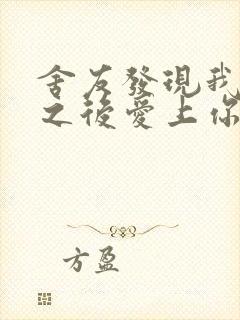 舍友發現我
之後愛上你
方盈